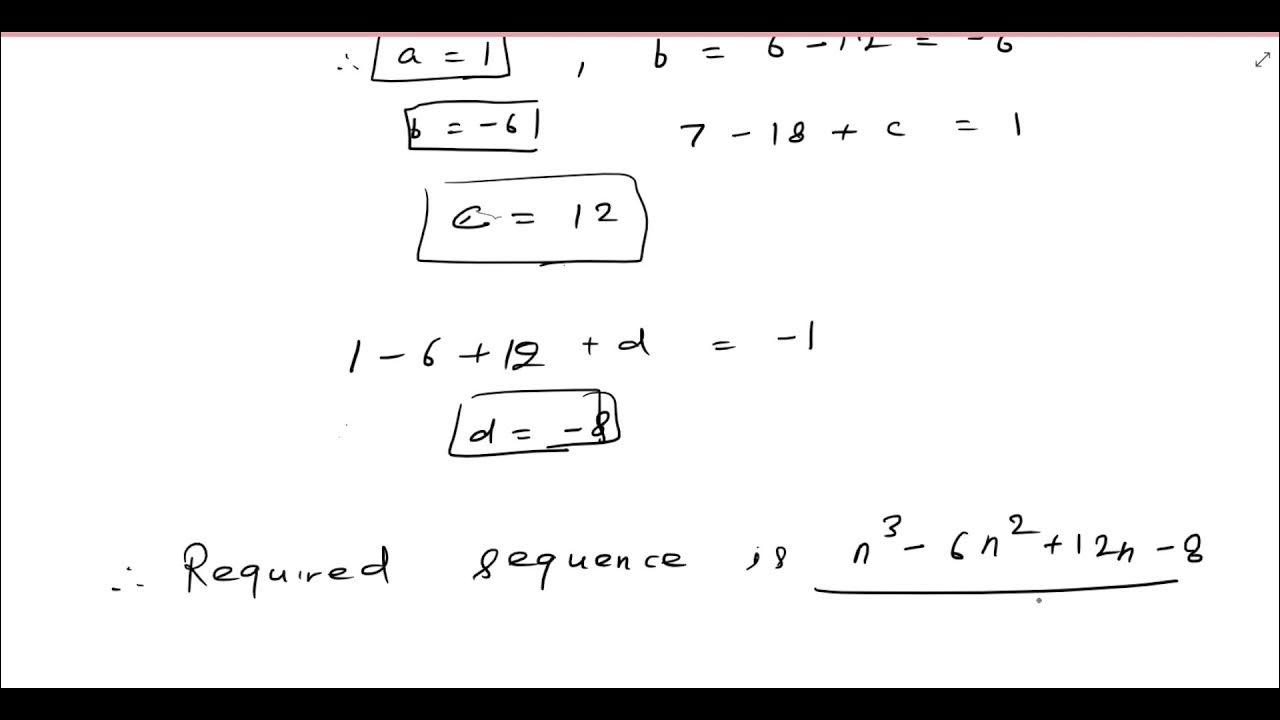 ∴ a = 1 , b = 6 - 12 = -6
b = -6 7 - 18 + c = 1
c = 12
1 - 6 + 12 + d = -1
d = -8
∴ Required sequence is n³ - 6n² + 12n - 8